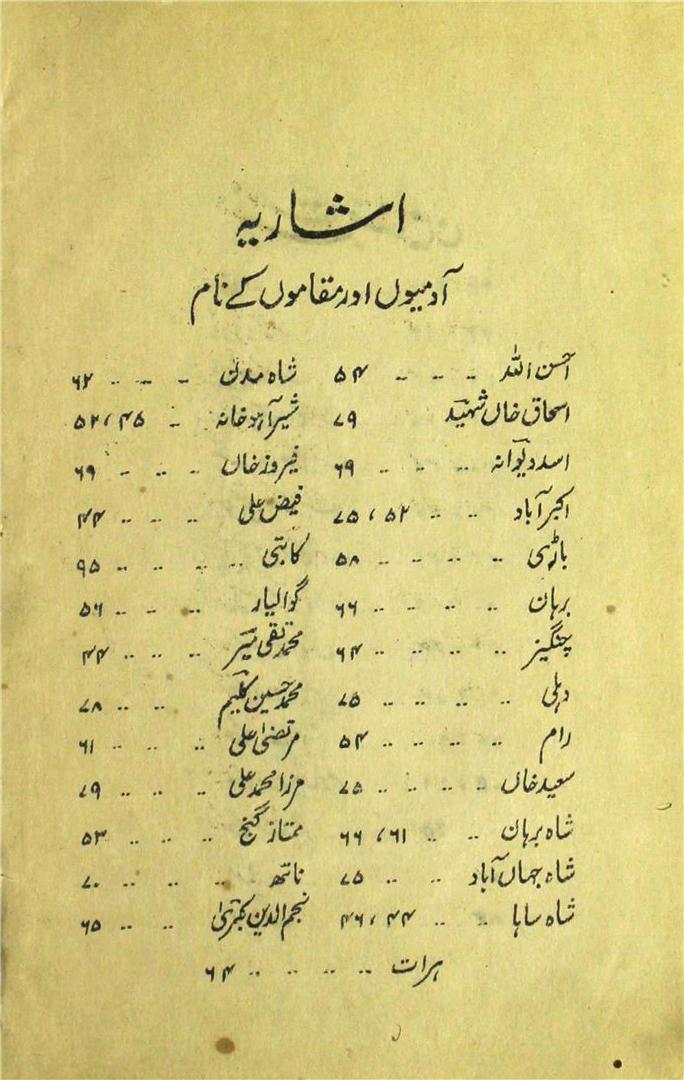 اشاریہ
آدمیوں اور مقاموں کے نام
احسن اللہ - - - ۵۴
اسحاق خاں شہید ۷۹
اسد دیوانہ .. .. .. ۶۹
اکبرآباد .. .. ۵۲، ۷۵
باڑہی .. .. .. .. ۵۸
برہان .. .. .. .. ۶۶
چنگیز .. .. .. .. ۶۴
دہلی .. .. .. .. ۷۵
رام .. .. .. .. ۵۴
سعید خاں .. .. .. ۷۵
شاہ برہان .. .. ۶۱، ۶۶
شاہ جہاں آباد .. .. ۷۵
شاہ ساہا .. .. ۴۴، ۴۶
شاہ مدن - -- .. ۶۲
شیر آہو خانہ - ۴۵، ۵۲
فیروز خاں .. .. - ۶۹
فیض علی .. .. .. ۴۴
کا بتی .. .. .. .. ۹۵
گوالیار .. - .. ۵۶
محمد تقی میر .. .. .. ۴۴
محمد حسین کلیم .. .. ۷۸
مرتضیٰ علی .. .. .. ۶۱
مرزا محمد علی .. .. .. ۷۹
ممتاز گنج .. .. .. ۵۳
ناتھ .. .. .. .. ۷۰
نجم الدین کبریٰ .. .. ۶۵
ہرات .. .. .. .. ۶۴